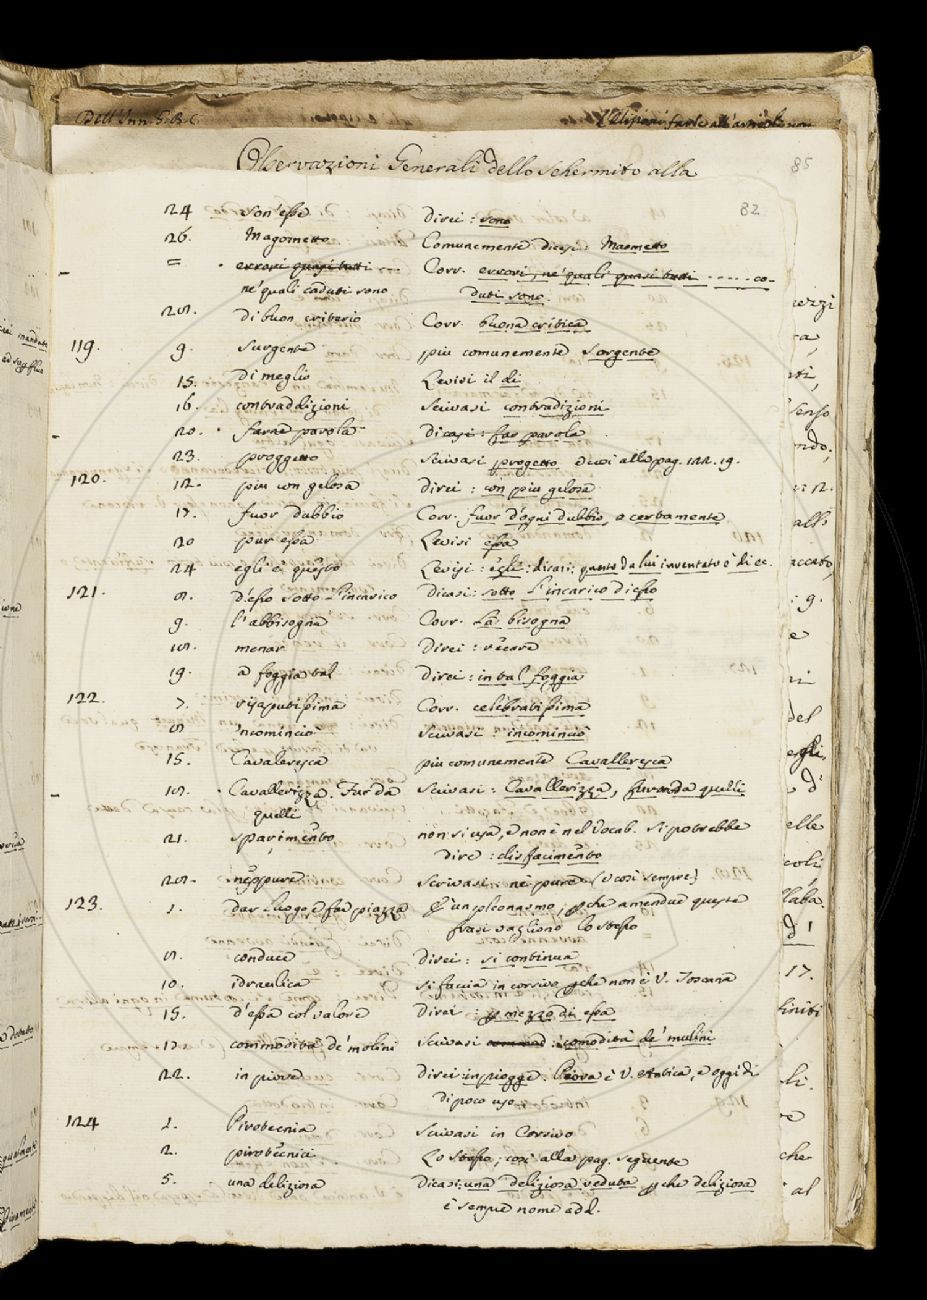 Dell'Inn. S. B. C.
farle all'
85
Osservazioni Generali dello schermito alla
82
24 son'esse Direi: sono
26. Magometto Comunemente dicesi: Maometto
= errori quasi tutti ... Corr. errori, ne' quali quasi tutti ..... ca-
ne' quali caduti sono duti sono.
di buon criterio Corr. buona critica
119. 9. surgente piu comunemente sorgente
15. di meglio Levisi il di
16. contraddizioni scrivasi contradizioni
20. farne parola Dicasi: far parola
23. proggetto scrivasi progetto e così alla pag. 122. 19.
120. 12. piu con gelosa Direi: con piu gelosa
17. fuor dubbio Corr. fuor d'ogni dubbio, o certamente
20 pur essa Levisi essa
24 egli è questo Levisi: egli: dicasi: questo da lui inventato è di ec.
121. d'esso sotto l'incarico Dicasi: sotto l'incarico d'esso
9. l'abbisogna Corr. La bisogna
menar Direi: recare
19. a foggia tal Direi: in tal foggia
122. 7. riputatissima Corr. celebratissima
'ncominciò scrivasi: incominciò
15. Cavaleresca piu comunemente Cavalleresca
Cavallerizza. Furda scrivasi: Cavallerizza, furonda quelli
quelli
21. sparimento non si usa, e non è nel Vocab. Si potrebbe
dire: disfacimento
neppure scrivasi: nè pure (e così sempre)
123. 1. dar luogo, e far piazza È un pleonasmo; pche amendue queste
frasi vagliono lo stesso
conduce Direi: si continua
10. idraulica si faccia in corsivo pche non è V. Toscana
15. d'essa col valore Direi: p mezzo di essa
17. commodità de' molini scrivasi: comodità de' mulini
22. in piove Direi in piogge. Piova è V. Antica, e oggidì
di poco uso
124 1. Pirotecnia scrivasi in Corsivo
2. pirotecnici Lo stesso; così alla pag. seguente
5. una deliziosa Dicasi: una deliziosa veduta pche deliziosa
è sempre nome add.